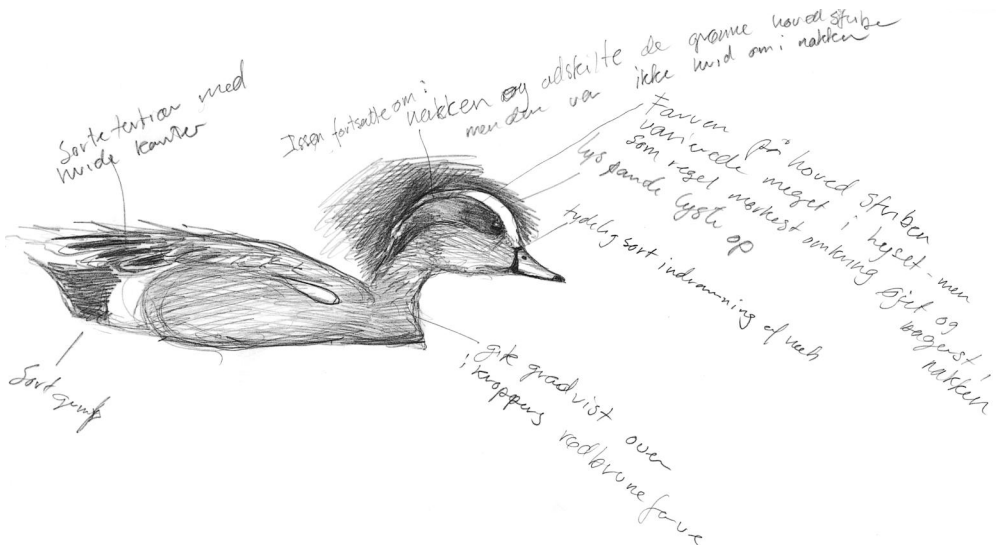 Sorte tertiær med
hvide kanter
Issen fortsatte om i
nakken og adskilte de grønne hovedstriber
men den var ikke hvid om i nakken
Farven på hoved striben
varierede meget i lyset - men
som regel mørkest omkring øjet og
bagerst i
nakken
lys pande lyste op
tydelig sort indramning af næb
gik gradvist over
i kroppens rødbrune farve
Sort gump